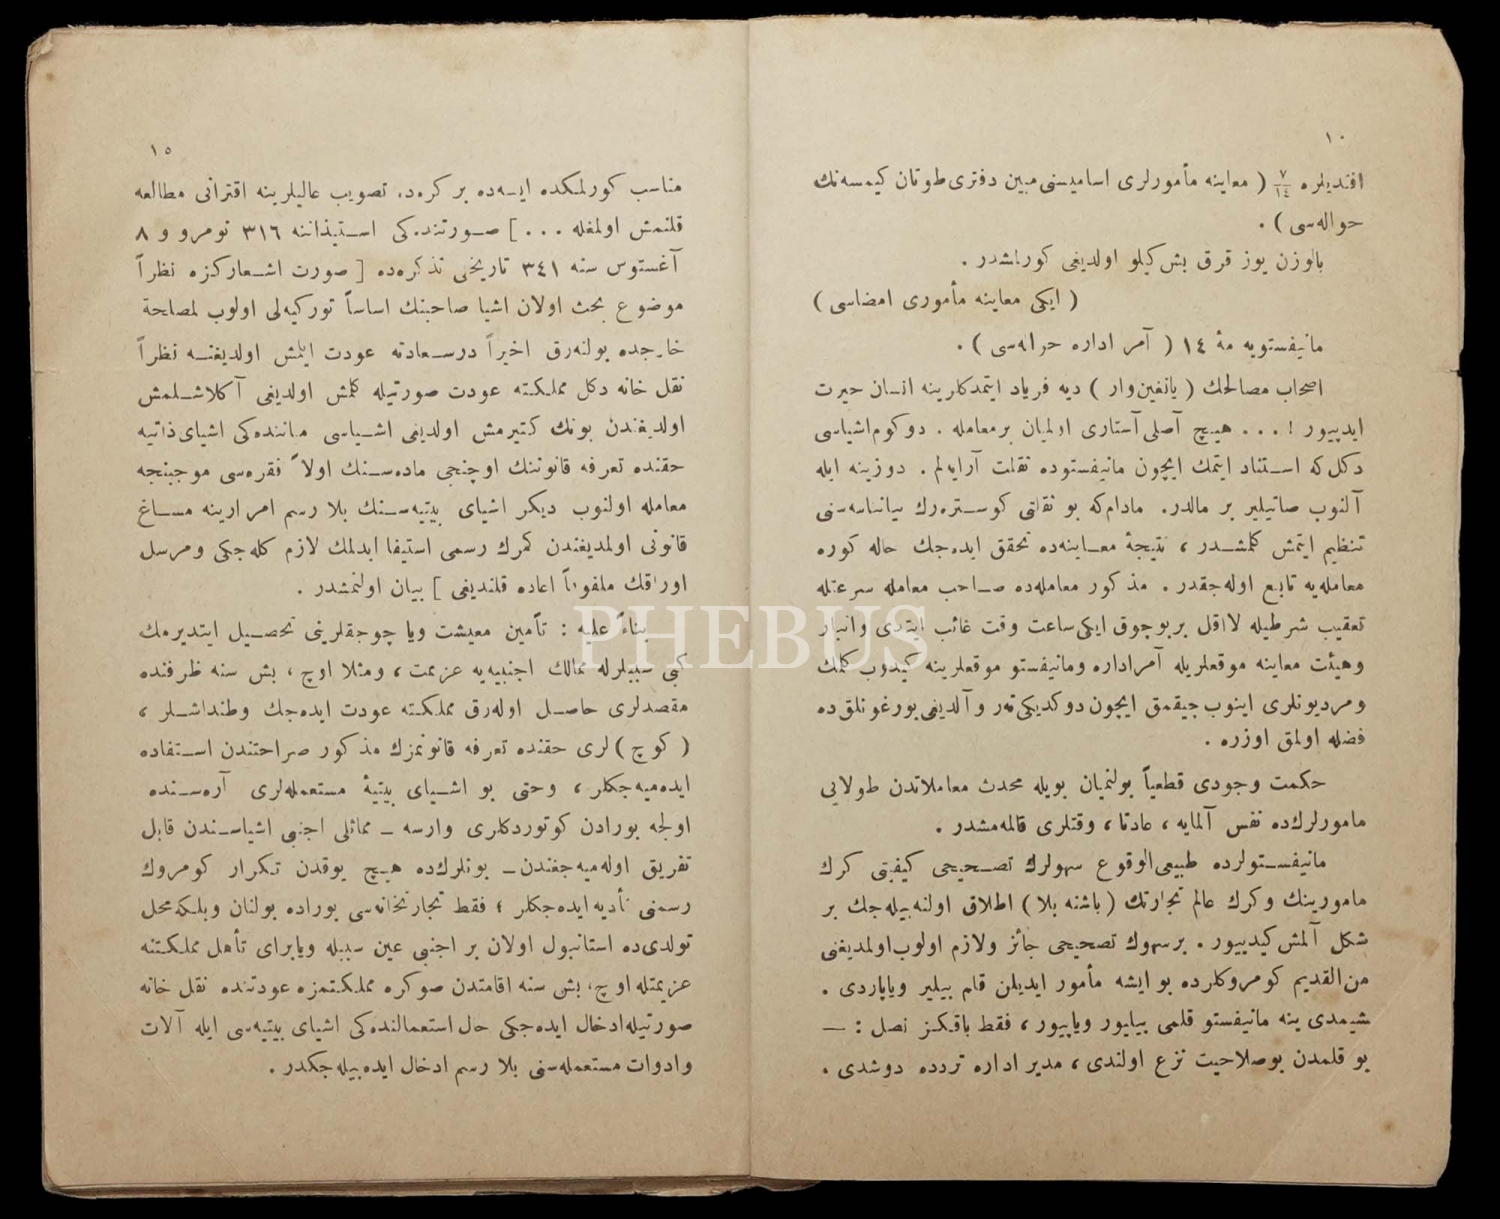 ١٠
افنديلره ٧/١٤ ( معاينه مأمورلرى اساميسنى مبين دفترى طوتان كيمسه‌نك
حواله‌سى ) .
بالوزن يوز قرق بش كيلو اولديغى كورلشدر .
( ايكى معاينه مأمورى امضاسى )
مانيفستويه مهٔ ١٤ ( آمر اداره حواله‌سى ) .
اصحاب مصالحك ( يانغين‌وار ) ديه فرياد ايتمدكلرينه انسان حيرت
ايدييور ! ... هيچ آصلى آستارى اولميان برمعامله . دوكوم‌اشياسى
دكل‌كه استناد ايتمك ايچون مانيفستوده ثقلت آرايه‌لم . دوزينه ايله
آلنوب صاتيلير بر مالدر. مادام‌كه بو ثقلتى كوستره‌رك بياننامه‌سنى
تنظيم ايتمش كلمشدر ، نتيجهٔ معاينه‌ده تحقق ايده‌جك حاله كوره
معامله‌يه تابع اوله‌جقدر . مذكور معامله‌ده صاحب معامله سرعتله
تعقيب شرطيله لااقل بربوچوق ايكى‌ساعت وقت غائب ايتدى وانبار
وهيئت معاينه موقعلريله آمراداره ومانيفستو موقعلرينه كيدوب كلمك
ومرديونلرى اينوب چيقمق ايچون دوكديكى‌تر وآلديغى‌يورغونلق‌ده
فضله اولمق اوزره .
حكمت وجودى قطعياً بولنميان بويله محدث معاملاتدن طولايى
مامورلرك‌ده نفس آلمايه ، عادتا ، وقتلرى قالمه‌مشدر .
مانيفستولرده طبيعى‌الوقوع سهولرك تصحيحى كيفيتى كرك
مامورينك وكرك عالم تجارتك ( باشنه بلا ) اطلاق اولنه‌بيله‌جك بر
شكل آلمش كيدييور . برسهوك تصحيحى جائز ولازم اولوب‌اولمديغنى
من‌القديم كومروكلرده بو ايشه مأمور ايديلن قلم بيلير وياپاردى .
شيمدى ينه مانيفستو قلمى بيلييور وياپييور ، فقط باقيكز نصل : —
بو قلمدن بوصلاحيت نزع اولندى ، مدير اداره تردده دوشدى .
١٥
مناسب كورلمكده ايسه‌ده بر كره‌ده تصويب عاليلرينه اقترانى مطالعه
قلنمش اولمغله ... ] صورتنده‌كى استيذاننه ٣١٦ نومرو و ٨
آغستوس سنه ٣٤١ تاريخلى تذكره‌ده [ صورت اشعاركزه نظراً
موضوع بحث اولان اشيا صاحبنك اساساً توركيه‌لى اولوب لمصلحة
خارجده بولنه‌رق اخيراً درسعادته عودت ايتمش اولديغنه نظراً
نقل خانه دكل مملكته عودت صورتيله كلمش اولديغى آكلاشلمش
اولديغندن بونك كتيرمش اولديغى اشياسى مياننده‌كى اشياى ذاتيه
حقنده تعرفه قانوننك اوچنجى ماده‌سنك اولاً فقره‌سى موجبنجه
معامله اولنوب ديكر اشياى بيتيه‌سنك بلا رسم امرارينه مساغ
قانونى اولمديغندن كمرك رسمى استيفا ايدلمك لازم كله‌جكى ومرسل
اوراقك ملفوفاً اعاده قلنديغى ] بيان اولنمشدر .
بناءً عليه : تأمين معيشت ويا چوجقلرينى تحصيل ايتديرمك
كبى سببلرله ممالك اجنبيه‌يه عزيمت ، ومثلا اوچ ، بش سنه ظرفنده
مقصدلرى حاصل اوله‌رق مملكته عودت ايده‌جك وطنداشلر ،
( كوچ ) لرى حقنده تعرفه قانونمزك مذكور صراحتندن استفاده
ايده‌ميه‌جكلر ، وحتى بو اشياى بيتيهٔ مستعمله‌لرى آره‌سنده
اولجه بورادن كوتوردكلرى وارسه — مماثلى اجنبى اشياسندن قابل
تفريق اوله‌ميه‌جغندن — بونلرك‌ده هيچ يوقدن تكرار كومروك
رسمنى تأديه ايده‌جكلر ؛ فقط تجارتخانه‌سى بوراده بولنان وبلكه‌محل
تولدى‌ده استانبول اولان بر اجنبى عين سببله ويابراى تأهل مملكتنه
عزيمتله اوچ، بش سنه اقامتدن صوكره مملكتمزه عودتنده نقل خانه
صورتيله‌ادخال ايده‌جكى حال استعمالنده‌كى اشياى بيتيه‌سى ايله آلات
وادوات مستعمله‌سنى بلا رسم ادخال ايده‌بيله‌جكدر .
PHEBUS